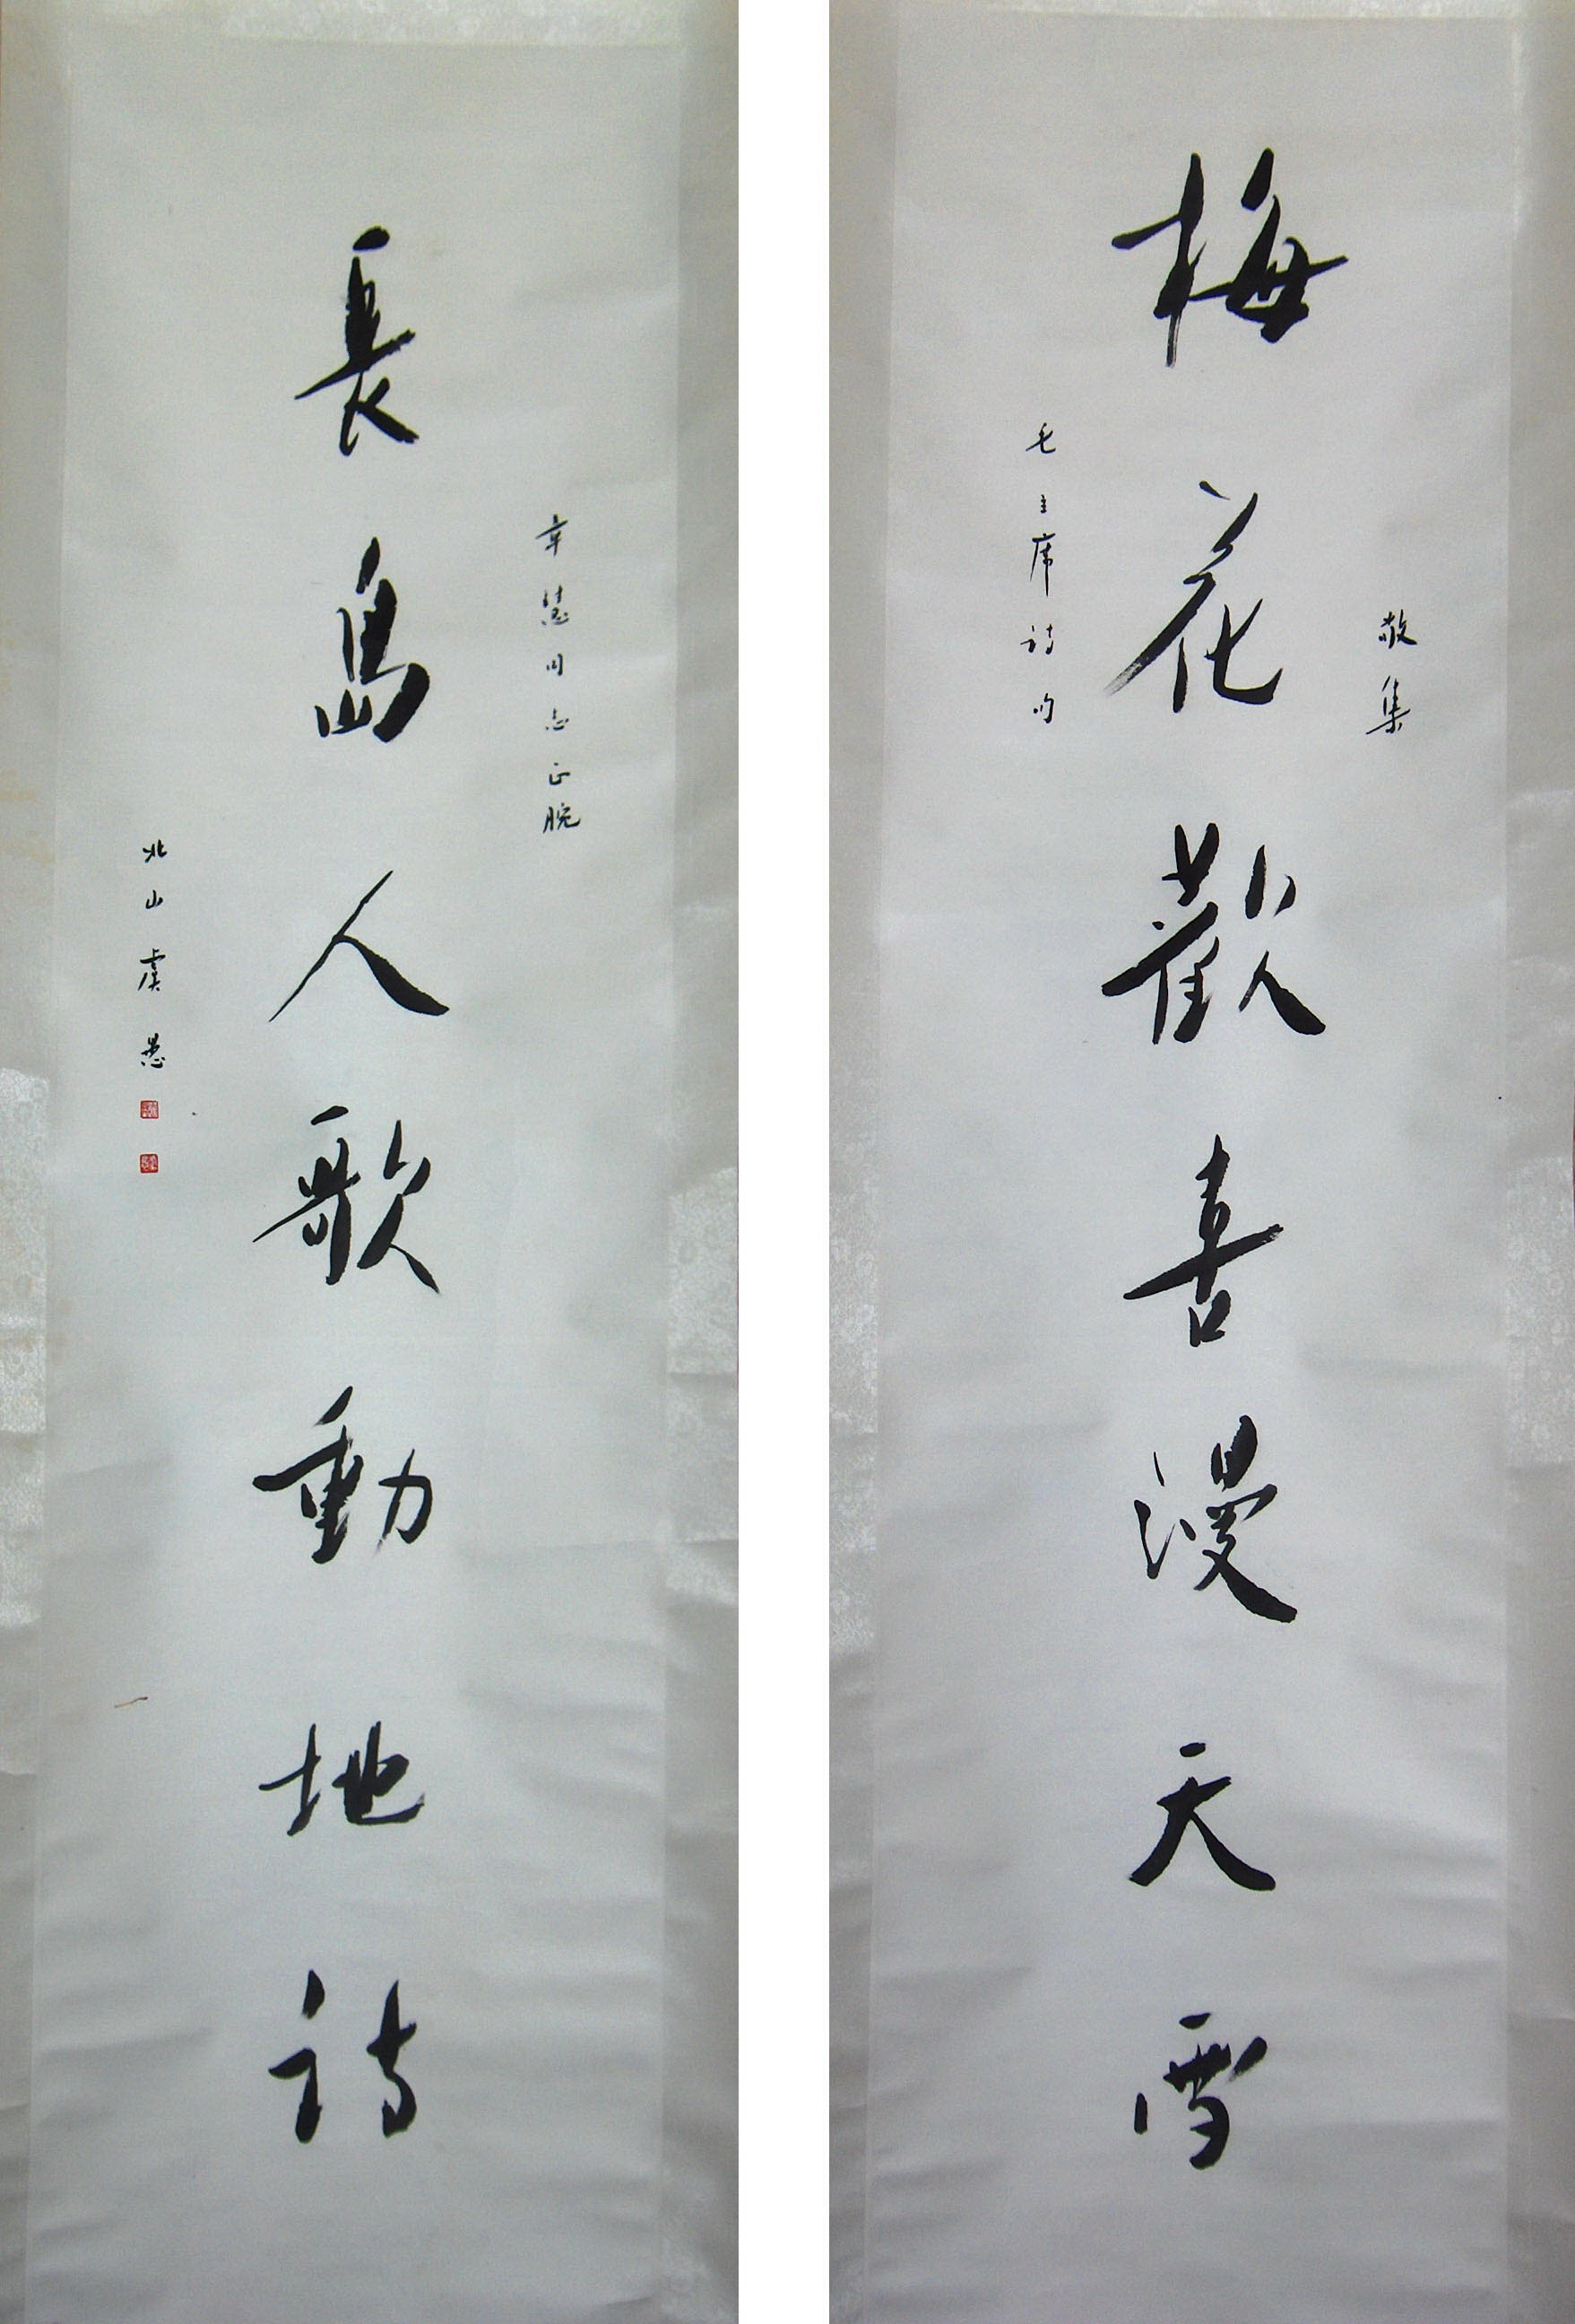 敬集
梅花歡喜漫天雪
毛主席詩句
辛慧同志正腕
長島人歌動地詩
北山虞愚